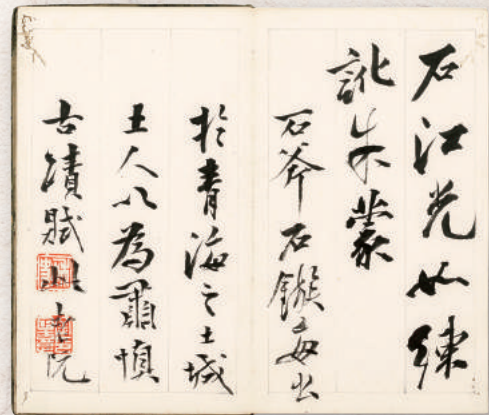 石江光如練
訛朱蒙
石斧石鏃每出
於青海之土城
土人以為肅慎
古蹟賦此老阮